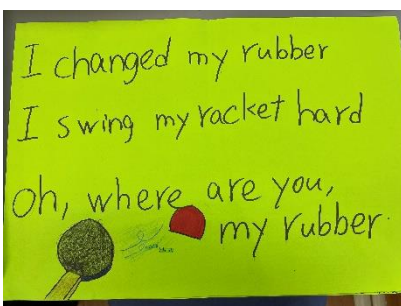 I changed my rubber
I swing my racket hard
Oh, where are you,
my rubber.